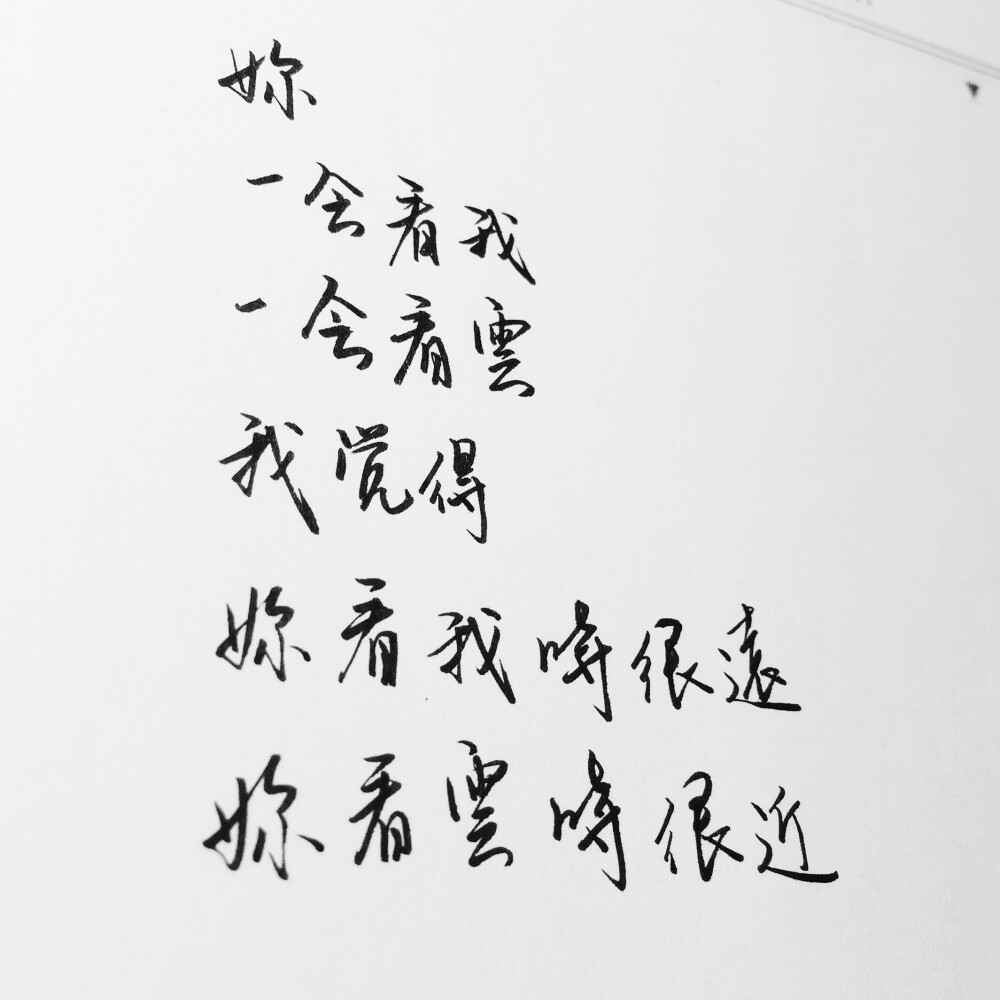 妳
一会看我
一会看雲
我觉得
妳看我時很遠
妳看雲時很近